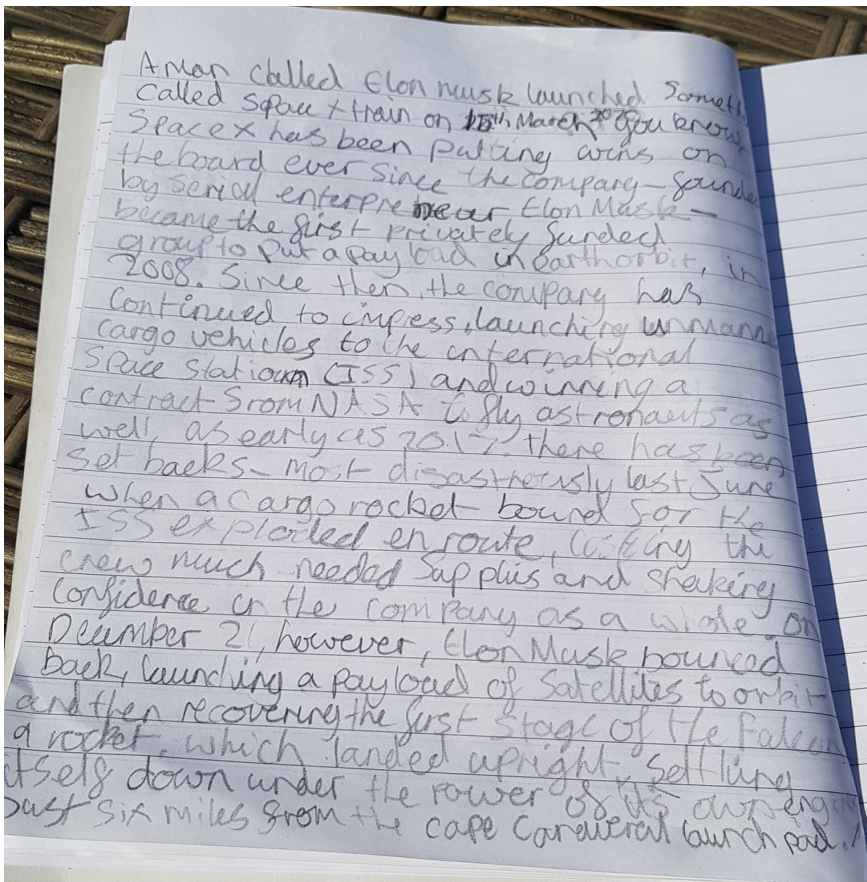 A man called Elon musk launched somet
called space x train on 15th March 2020 you know
Space x has been putting wins on
the board ever since the company - founde
by serial enterpreneur Elon Mask -
became the first privately funded
group to put a payload in earth orbit, in
2008. Since then, the company has
continued to impress, launching unmann
cargo vehicles to the international
space station (ISS) and winning a
contract from NASA to fly astronauts as
well, as early as 2017. there has been
set backs - most disasthously last June
when a cargo rocket bound for the
ISS exploded en route, costing the
crew much needed supplis and shaking
confidence in the company as a whole. on
December 21, however, Elon Mask bounced
back, launching a payload of Satellites to orbit
and then recovering the first stage of the Falcon
a rocket, which landed upright, settling
itself down under the power of its own engin
Just six miles from the cape Canaveral launch pad.